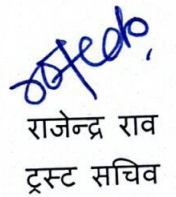 राजेन्द्र राव
ट्रस्ट सचिव